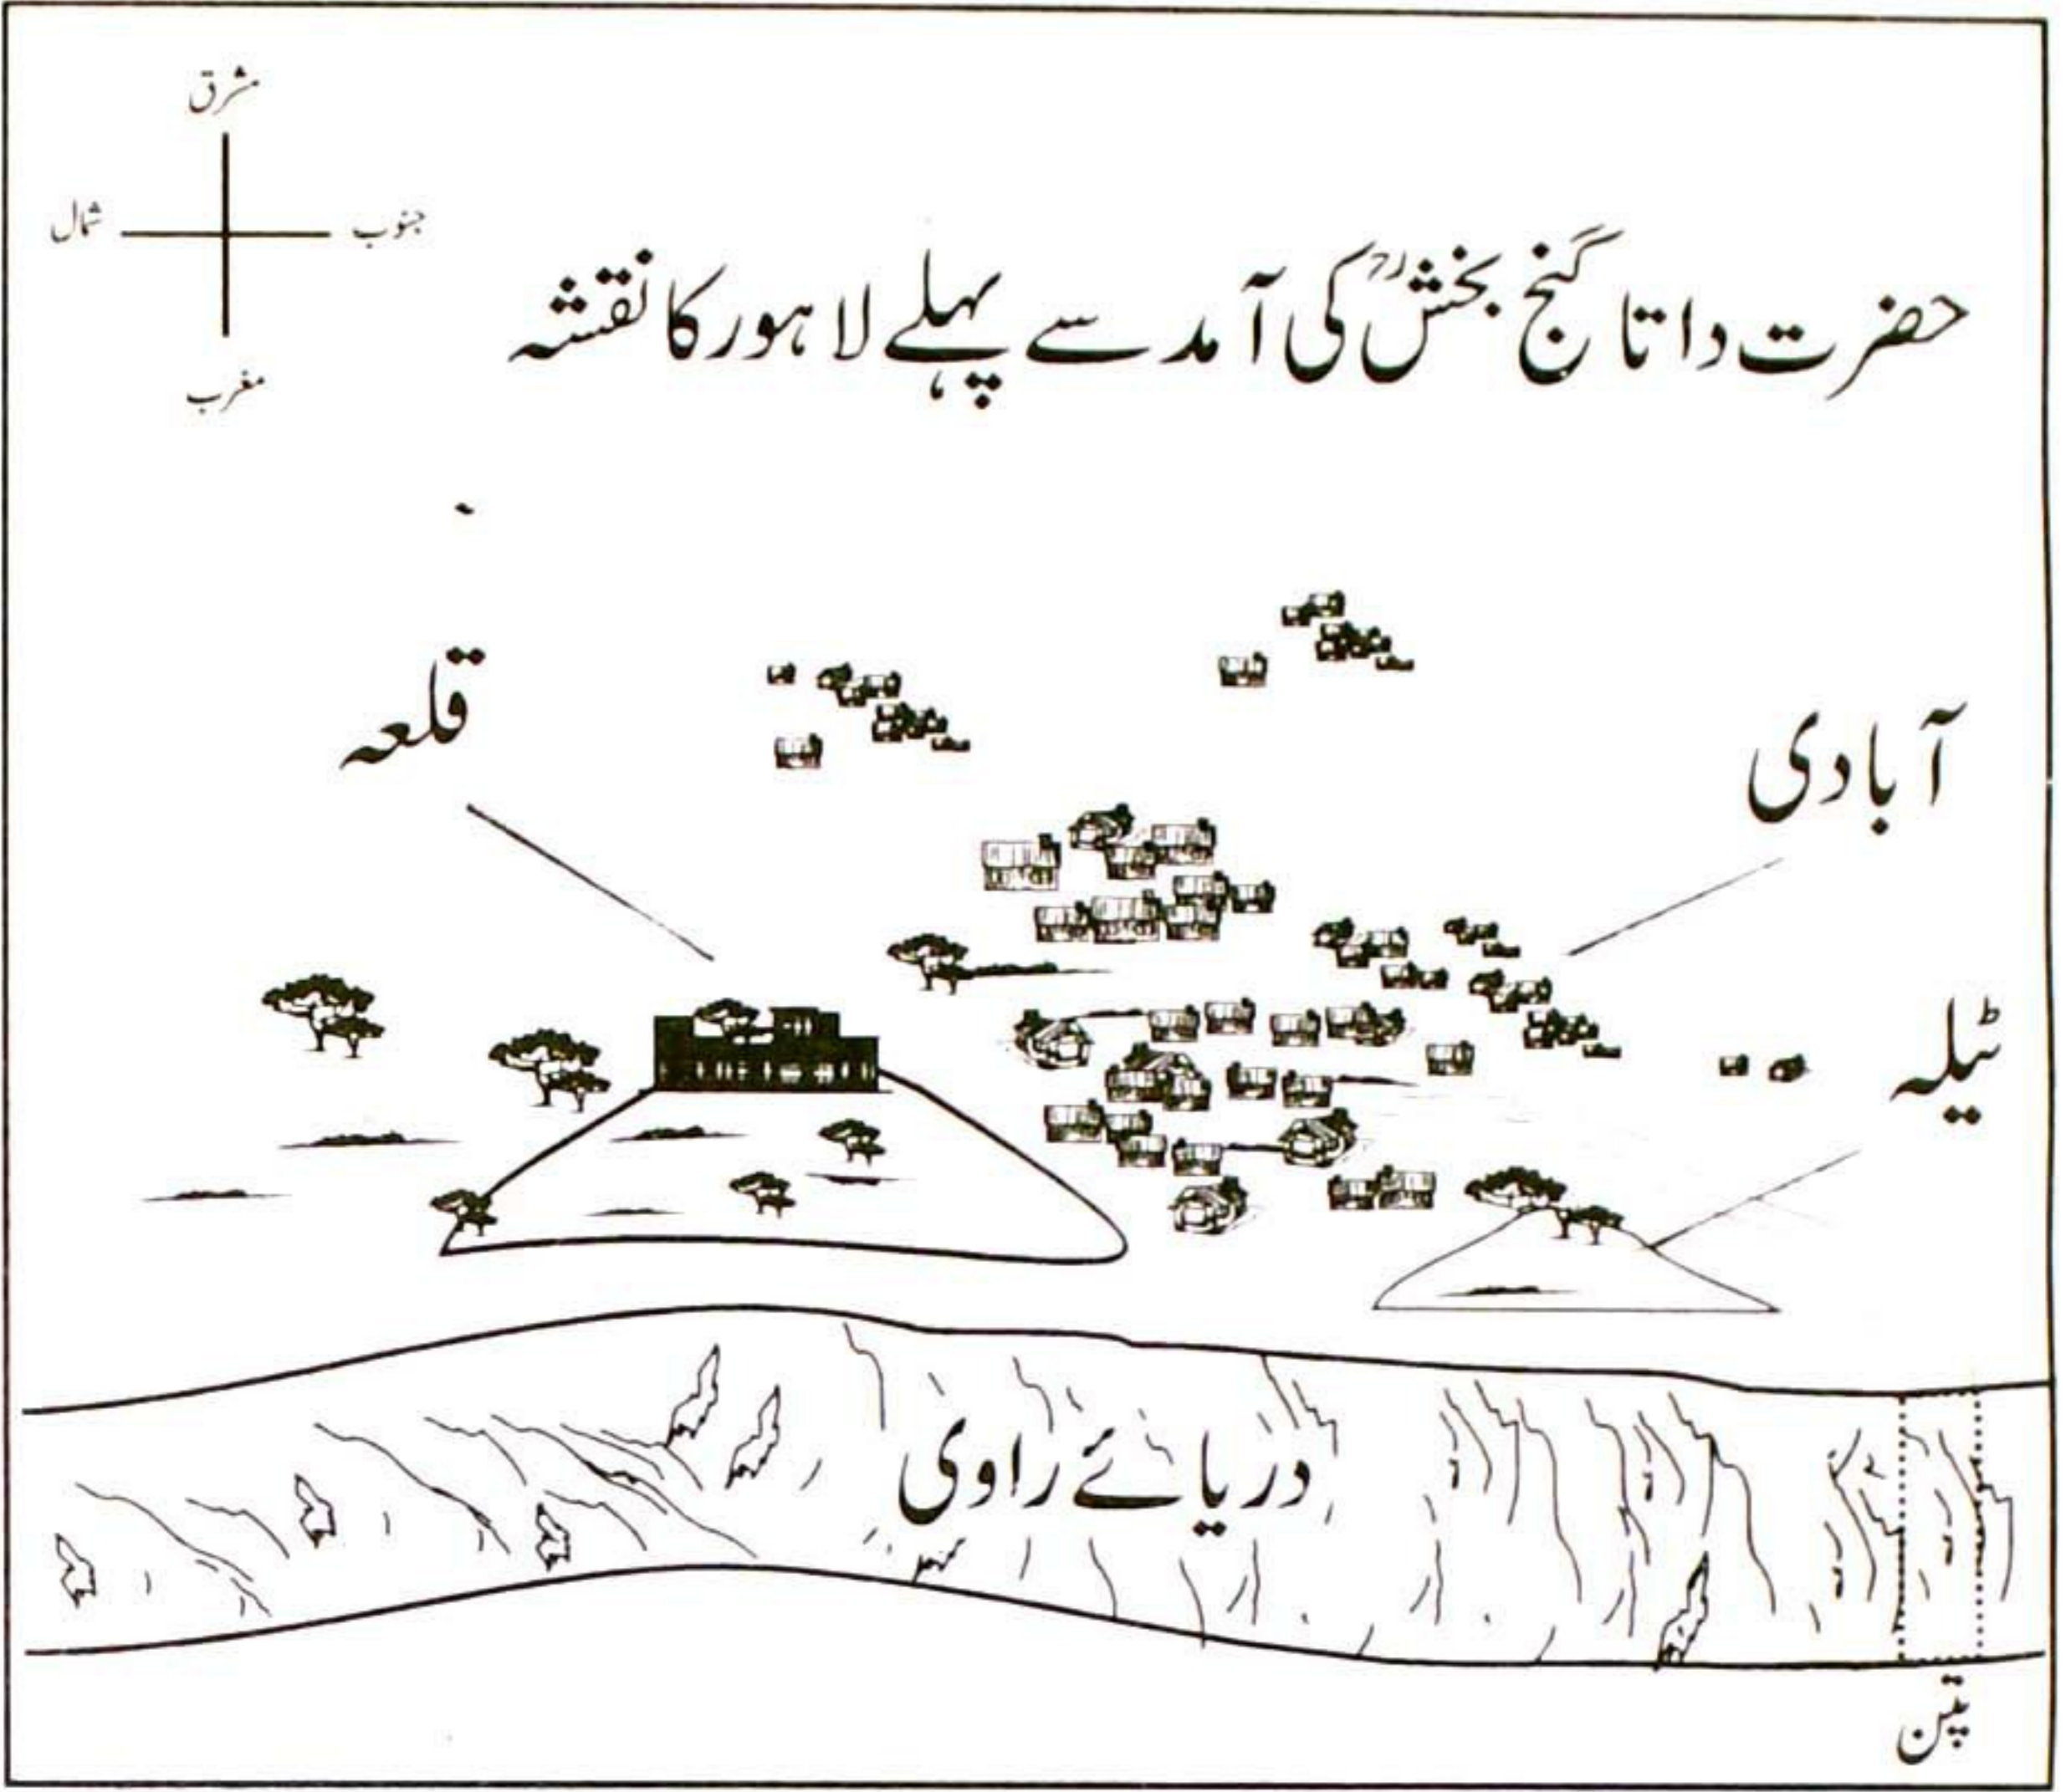 مشرق
شمال
جنوب
مغرب
حضرت داتا گنج بخشؒ کی آمد سے پہلے لاہور کا نقشہ
قلعہ
آبادی
ٹیلہ
دریائے راوی
پتن